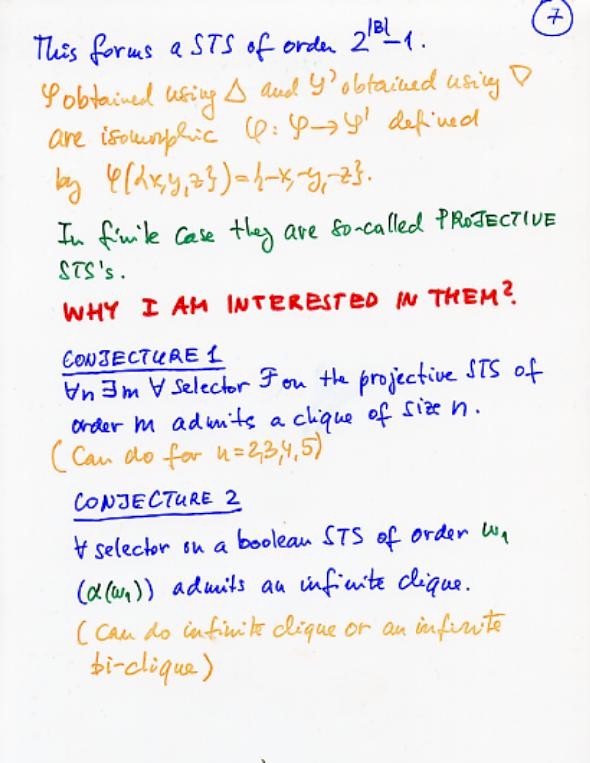 7
This forms a STS of order 2^|B|-1.
φ obtained using △ and φ' obtained using ▽
are isomorphic φ: φ→φ' defined
by φ({x,y,z})={-x,-y,-z}.
In finite case they are so-called PROJECTIVE
STS's.
WHY I AM INTERESTED IN THEM?
CONJECTURE 1
∀n ∃m ∀ selector F on the projective STS of
order m admits a clique of size n.
(Can do for n=2,3,4,5)
CONJECTURE 2
∀ selector on a boolean STS of order ω₁
(α(ω₁)) admits an infinite clique.
(Can do infinite clique or an infinite
bi-clique)